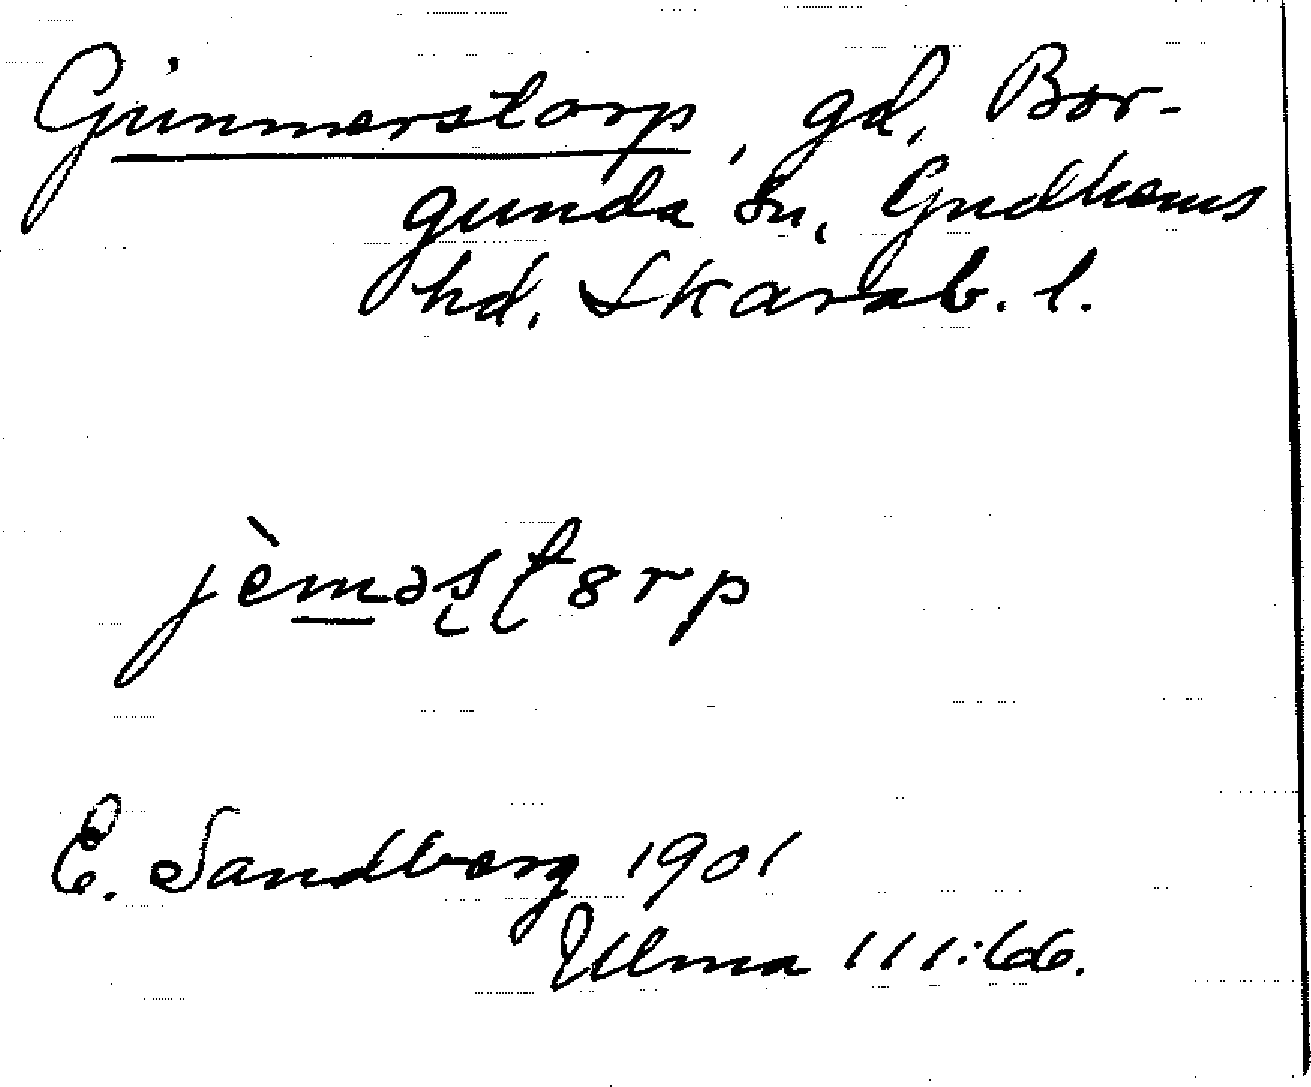 Gimmerstorp, gd, Bor-
gunda sn, Gudhems
hd, Skarab. l.
jèməʂʈ8rp
E. Sandberg 1901
Ulma 111:66.